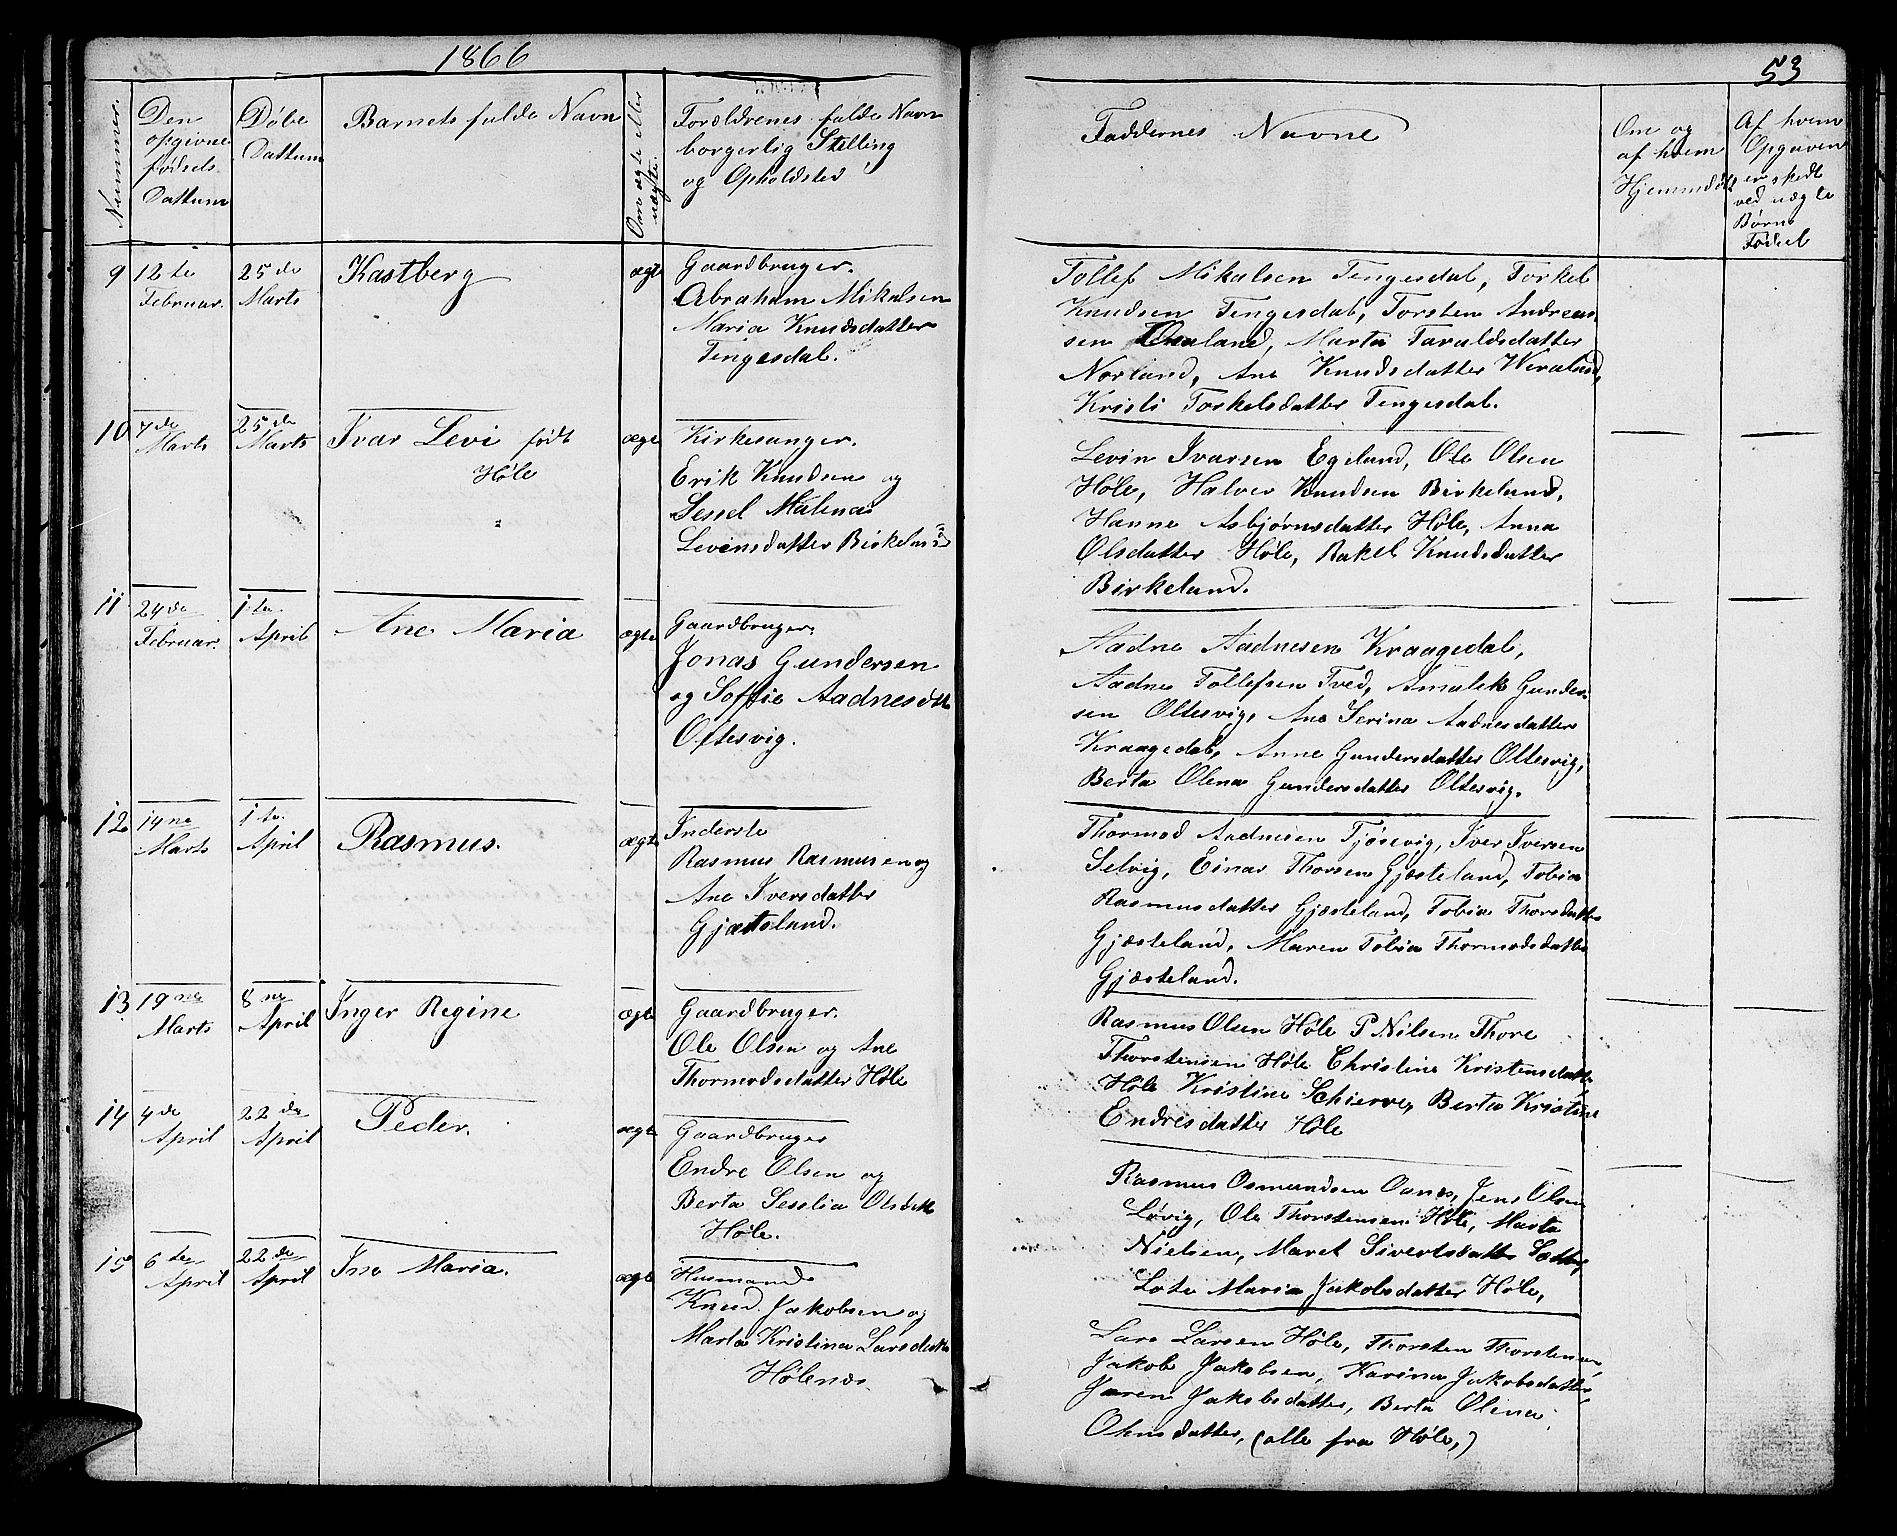 1866
53
Nummer.
Den
opgivne
fødsels
Dattum
Døbe
Dattum
Barnets fulde Navn
Om ægte eller
uægte.
Forældrenes fulde Navn
borgerlig Stelling
og Opholdsted
Faddernes Navne
Om og
af hvem
Hjemmedøbt
Af hvem
Opgaven
er skedt
ved uægte
Børns
Fødsel
9
12te
Februar.
25de
Marts
Kastberg
ægte
Gaardbruger.
Abraham Mikalsen
Maria Knudsdatter
Tengesdal.
Tollef Mikalsen Tengesdal, Torkel
Knudsen Tengesdal, Torsten Andreas
sen Marta Taraldsdatter
Norland, Ane Knudsdatter
Kristi Torkelsdatter Tengesdal.
10
7de
Marts
25de
Marts
Ivar Levi født
Høle
ægte
Kirkesanger.
Erik Knudsen og
Sessel Malena
Levinsdatter Birkeland
Levin Ivarsen Egeland, Ole Olsen
Høle, Halver Knudsen Birkeland,
Hanne Asbjørnsdatter Høle, Anna
Olsdatter Høle, Rakel Knudsdatter
Birkeland.
11
24de
Februar.
1te
April
Ane Maria
ægte
Gaardbruger.
Jonas Gundersen
og Soffie Aadnesdtt
Oftesvig.
Aadne Aadnesen Kraagedal,
Aadne Tollefsen Tved, Amalek Gunder
sen Oltesvig, Ane Serina Aadnesdatter
Kraagedal, Anne Gundersdatter Oltesvig,
Berta Olena Gundersdatter Oltesvig.
12
14ne
Marts
1te
April
Rasmus.
ægte
Inderste
Rasmus Rasmusen og
Ane Iversdatter
Gjæsteland.
Thormod Aadnesen Tjøsevig, Iver Iversen
Selvig, Einar Thorsen Gjæsteland, Tobia
Rasmusdatter Gjæsteland, Tobia Thorsdatter
Gjæsteland, Maren Tobia Thormodsdatter
Gjæsteland.
13
19ne
Marts
8ne
April
Inger Regine
ægte
Gaardbruger.
Ole Olsen og Ane
Thormodsdatter Høle
Rasmus Olsen Høle P Nilsen Thore
Thorstensen Høle Christine Kristensdatter
Høle Kristine Schierve, Berta Kristine
Endresdatter Høle
14
4de
April
22de
April
Peder.
ægte
Gaardbruger
Endre Olsen og
Berta Sesselia Olsdtt
Høle.
Rasmus Osmundsen Oanes, Jens Olsen
Løvig, Ole Thorstensen Høle, Marta
Nielsen, Maret Sivertsdatter
Lote Maria Jakobsdatter Høle,
15
6te
April
22de
April
Ine Maria.
ægte
Husmand
Knud Jakobsen og
Marta Kristina Larsdatter
Hølenæs.
Lars Larsen Høle, Thorsten Thorstensen,
Jakob Jakobsen, Karina Jakobsdatter,
Jaren Jakobsdatter, Berta Olena
Ohnsdatter, (alle fra Høle,)